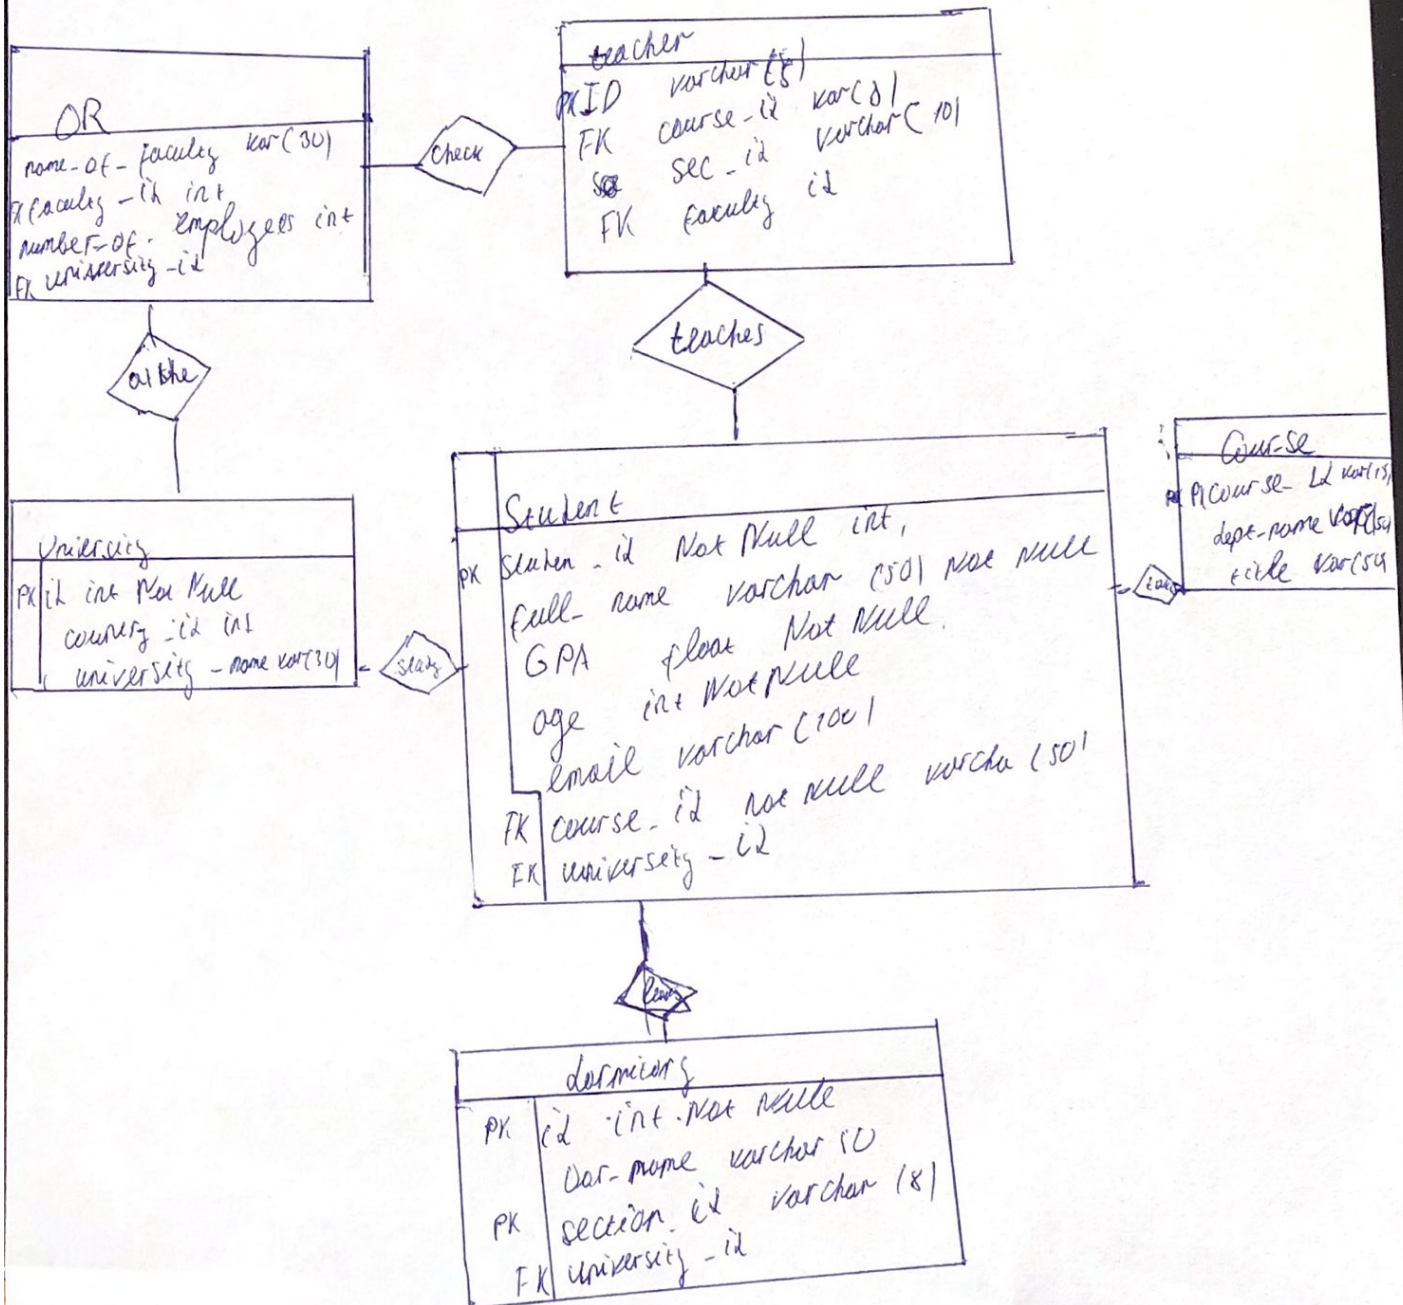 OR
name-of-faculty var(30)
faculty-id int
number-of-employees int
FK university-id
check
teacher
PK ID varchar(5)
FK course-id var(8)
sec-id varchar(10)
FK faculty id
teaches
University
PK id int Not Null
country-id int
university-name var(30)
Student
PK studen-id Not Null int,
full-name varchar (50) Not Null
GPA float Not Null
age int Not Null
email varchar (100)
FK course-id not null varcha (50)
FK university-id
Course
course-id
dept-name
title
dormitory
PK id int Not Null
Dor-name varchar 50
PK section-id varchar (8)
FK university-id